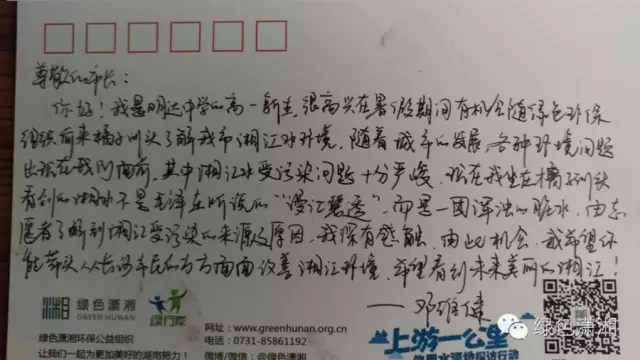 尊敬的市长：
你好！我是明达中学的高一新生，很高兴在暑假期间有机会随绿色环保
组织前来橘子洲头了解我市湘江水环境，随着城市的发展，各种环境问题
出现在我们面前，其中湘江水受污染问题十分严峻，现在我坐在橘子洲头
看到的湘水不是毛泽东所说的“漫江碧透”，而是一团浑浊的脏水，由志
愿者了解到湘江受污染的来源及原因，我深有感触，由此机会，我希望你
能带头从长沙市民的方方面面改善湘江环境，希望看到未来美丽的湘江！
——邓
绿色潇湘
GREEN HUNAN
绿行家
绿色潇湘环保公益组织
让我们一起为更加美好的湖南努力！
网址：www.greenhunan.org.cn
电话：0731-85861192
微博/微信：@绿色潇湘
上游一公里
绿色潇湘